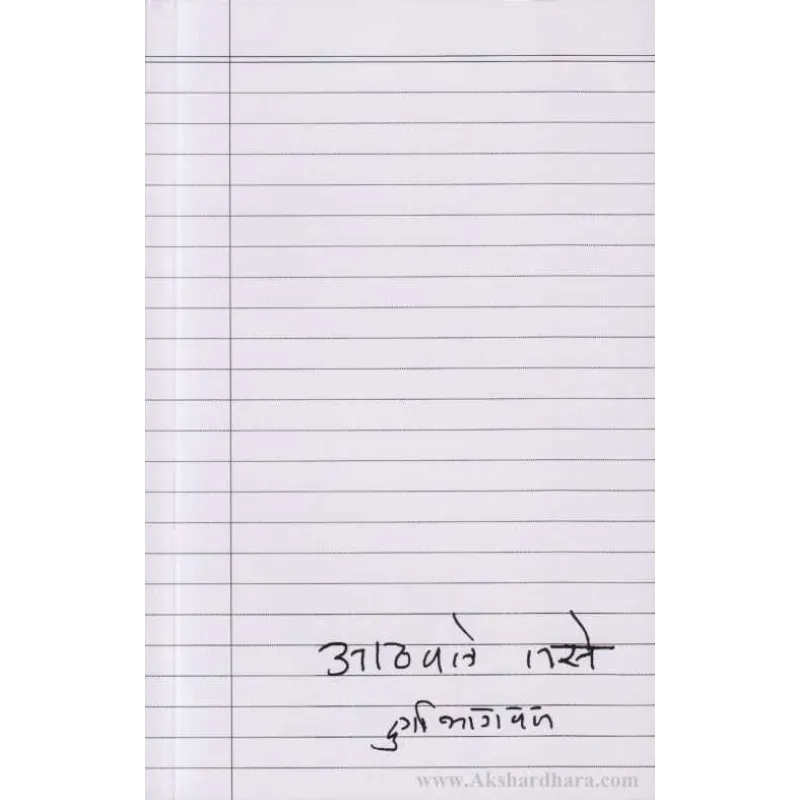 आठवले तसे
दुर्गा भागवत
www.Akshardhara.com